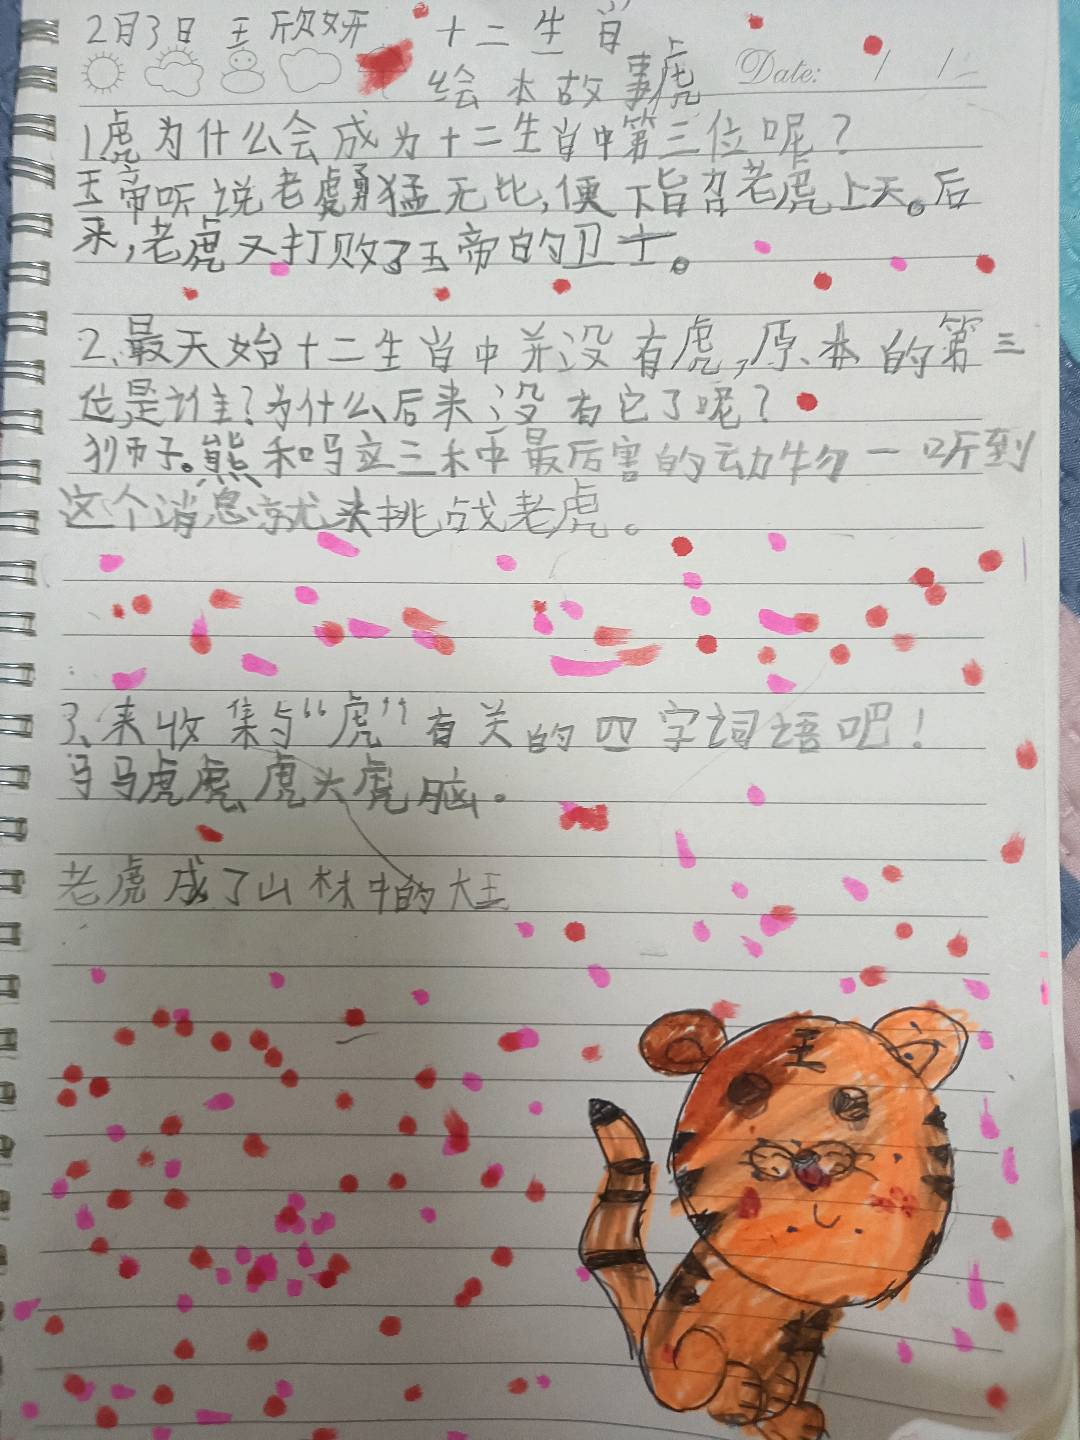 2月3日 王欣妍 十二生肖
绘本故事虎 Date: / /
1.虎为什么会成为十二生肖中第三位呢？
玉帝听说老虎勇猛无比，便下旨召老虎上天。后
来，老虎又打败了玉帝的卫士。
2、最天始十二生肖中并没有虎，原本的第三
位是谁？为什么后来没有它了呢？
狮子。熊和马这三木中最厉害的动物一听到
这个消息就来挑战老虎。
3、来收集与“虎”有关的四字词语吧！
马马虎虎、虎头虎脑。
老虎成了山林中的大王
王